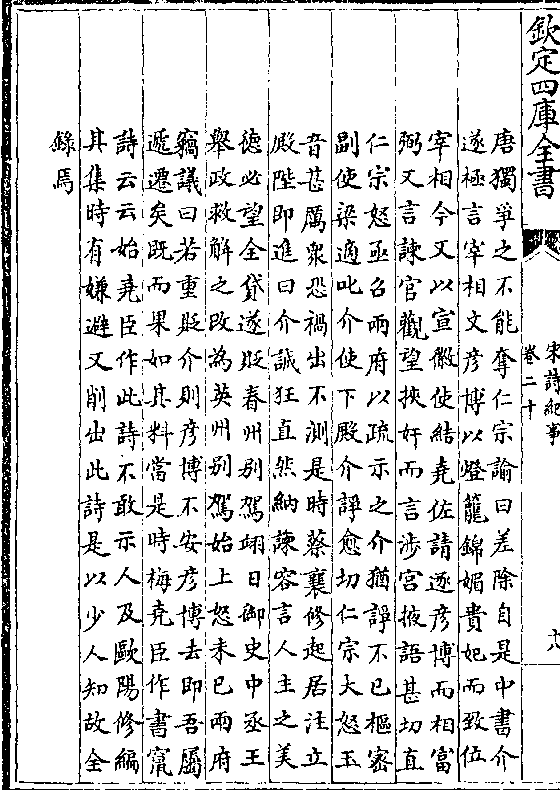 欽定四庫全書
宋詩紀事
卷二十
六
唐獨爭之不能奪仁宗諭曰差除自是中書介
遂極言宰相文彥博以燈籠錦媚貴妃而致位
宰相今又以宣徽使結堯佐請逐彥博而相富
弼又言諫官觀望挾奸而言涉宮掖語甚切直
仁宗怒亟召兩府以疏示之介猶諍不已樞密
副使梁適叱介使下殿介諍愈切仁宗大怒玉
音甚厲衆恐禍出不測是時蔡襄修起居注立
殿陛即進曰介誠狂直然納諫容言人主之美
徳必望全貸遂貶春州别駕翊日御史中丞王
舉政救解之改為英州别駕始上怒未已兩府
竊議曰若重貶介則彥博不安彥博去即吾屬
遞遷矣既而果如其料當是時梅堯臣作書竄
詩云云始堯臣作此詩不敢示人及歐陽修編
其集時有嫌避又削出此詩是以少人知故全
錄焉